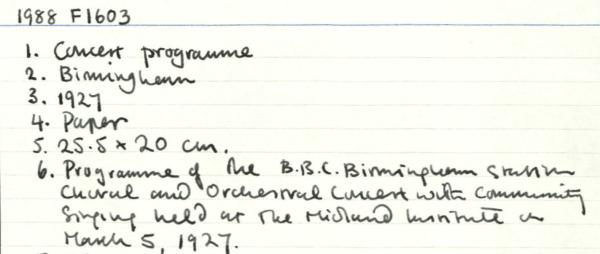 1988 F1603
1. Concert programme
2. Birmingham
3. 1927
4. Paper
5. 25.5 x 20 cm.
6. Programme of the B.B.C. Birmingham Station
Choral and Orchestral Concert with Community
Singing held at the Midland Institute on
March 5, 1927.